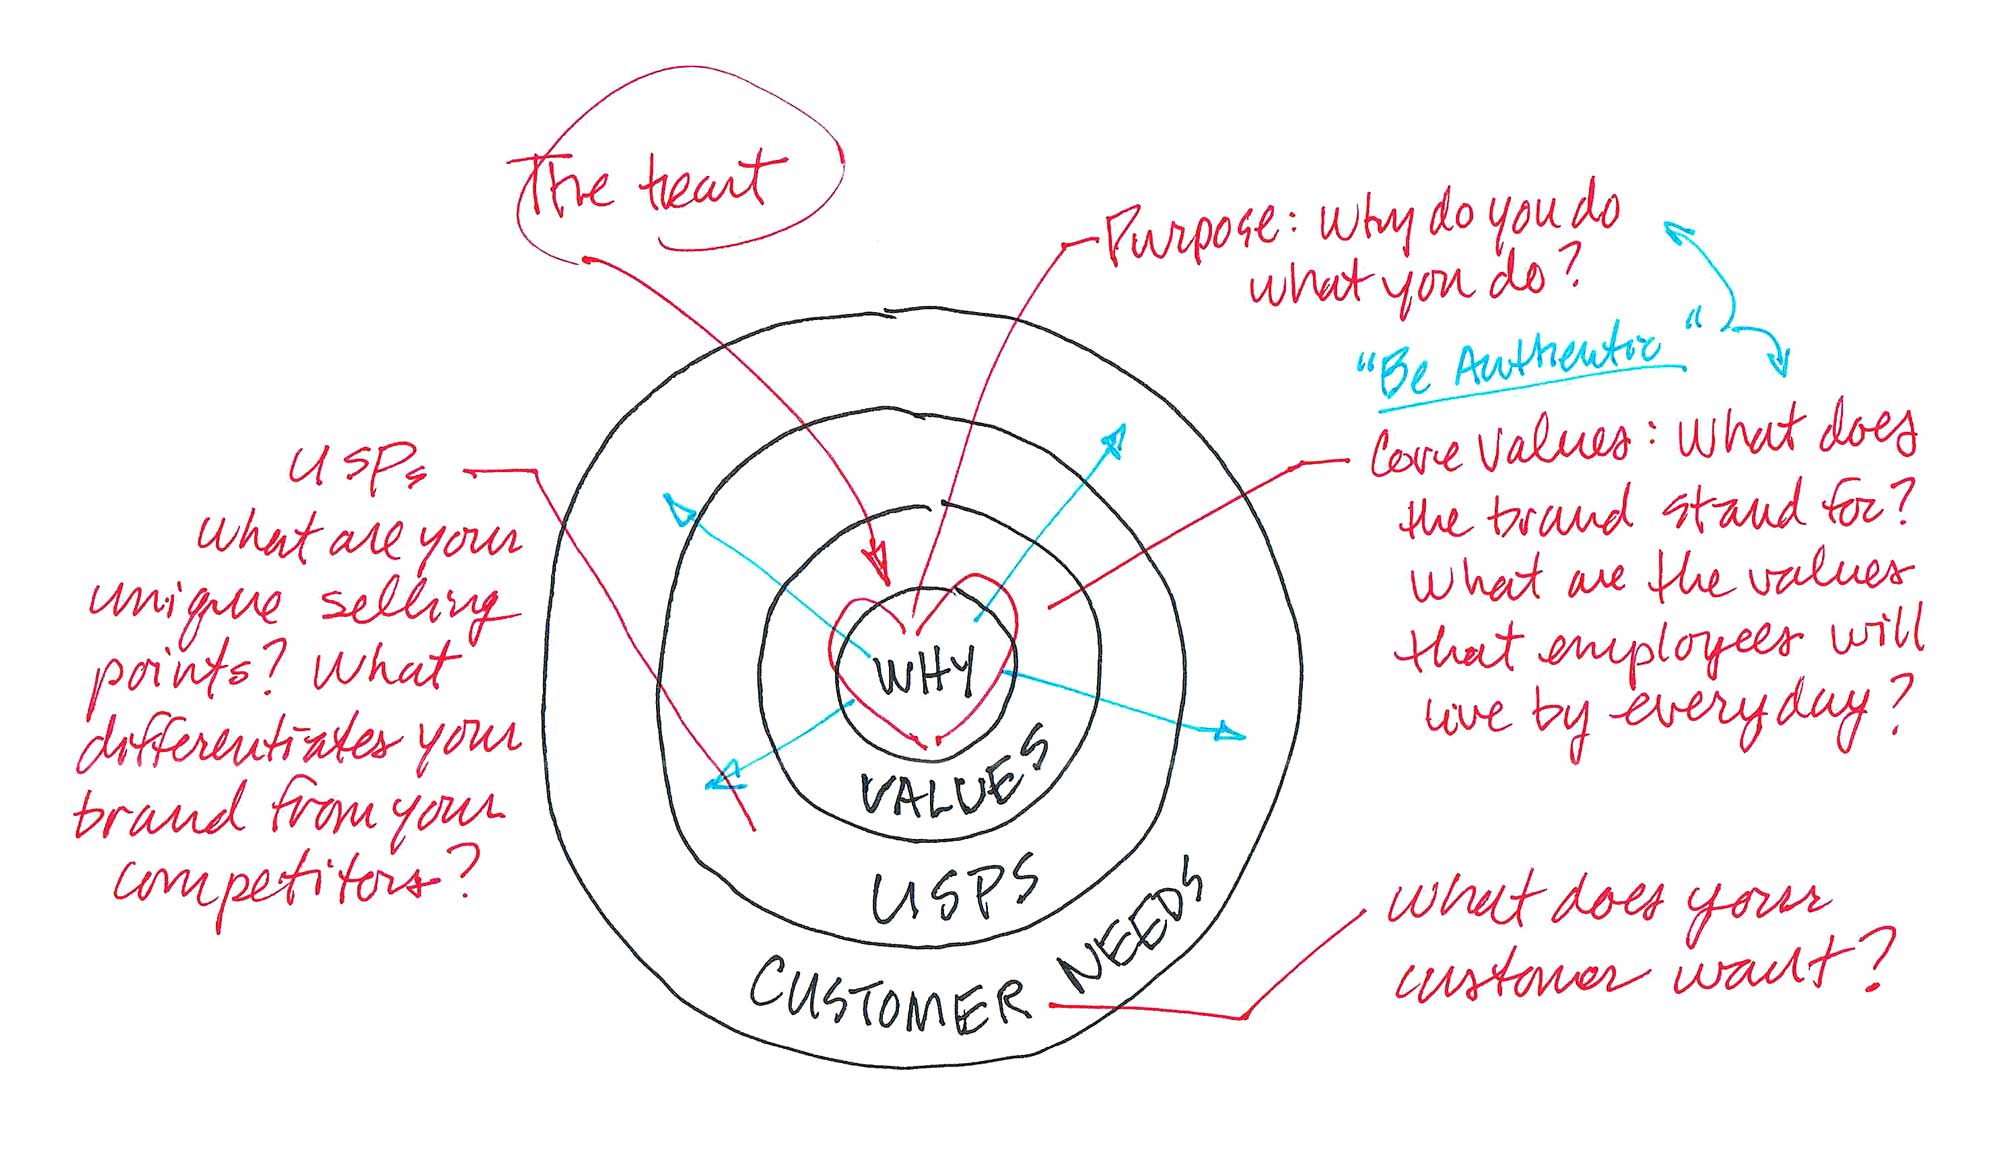 The heart
Purpose: Why do you do
what you do?
"Be Authentic"
Core Values: What does
the brand stand for?
What are the values
that employees will
live by everyday?
USPs
What are your
unique selling
points? What
differentiates your
brand from your
competitors?
WHY
VALUES
USPS
CUSTOMER NEEDS
What does your
customer want?